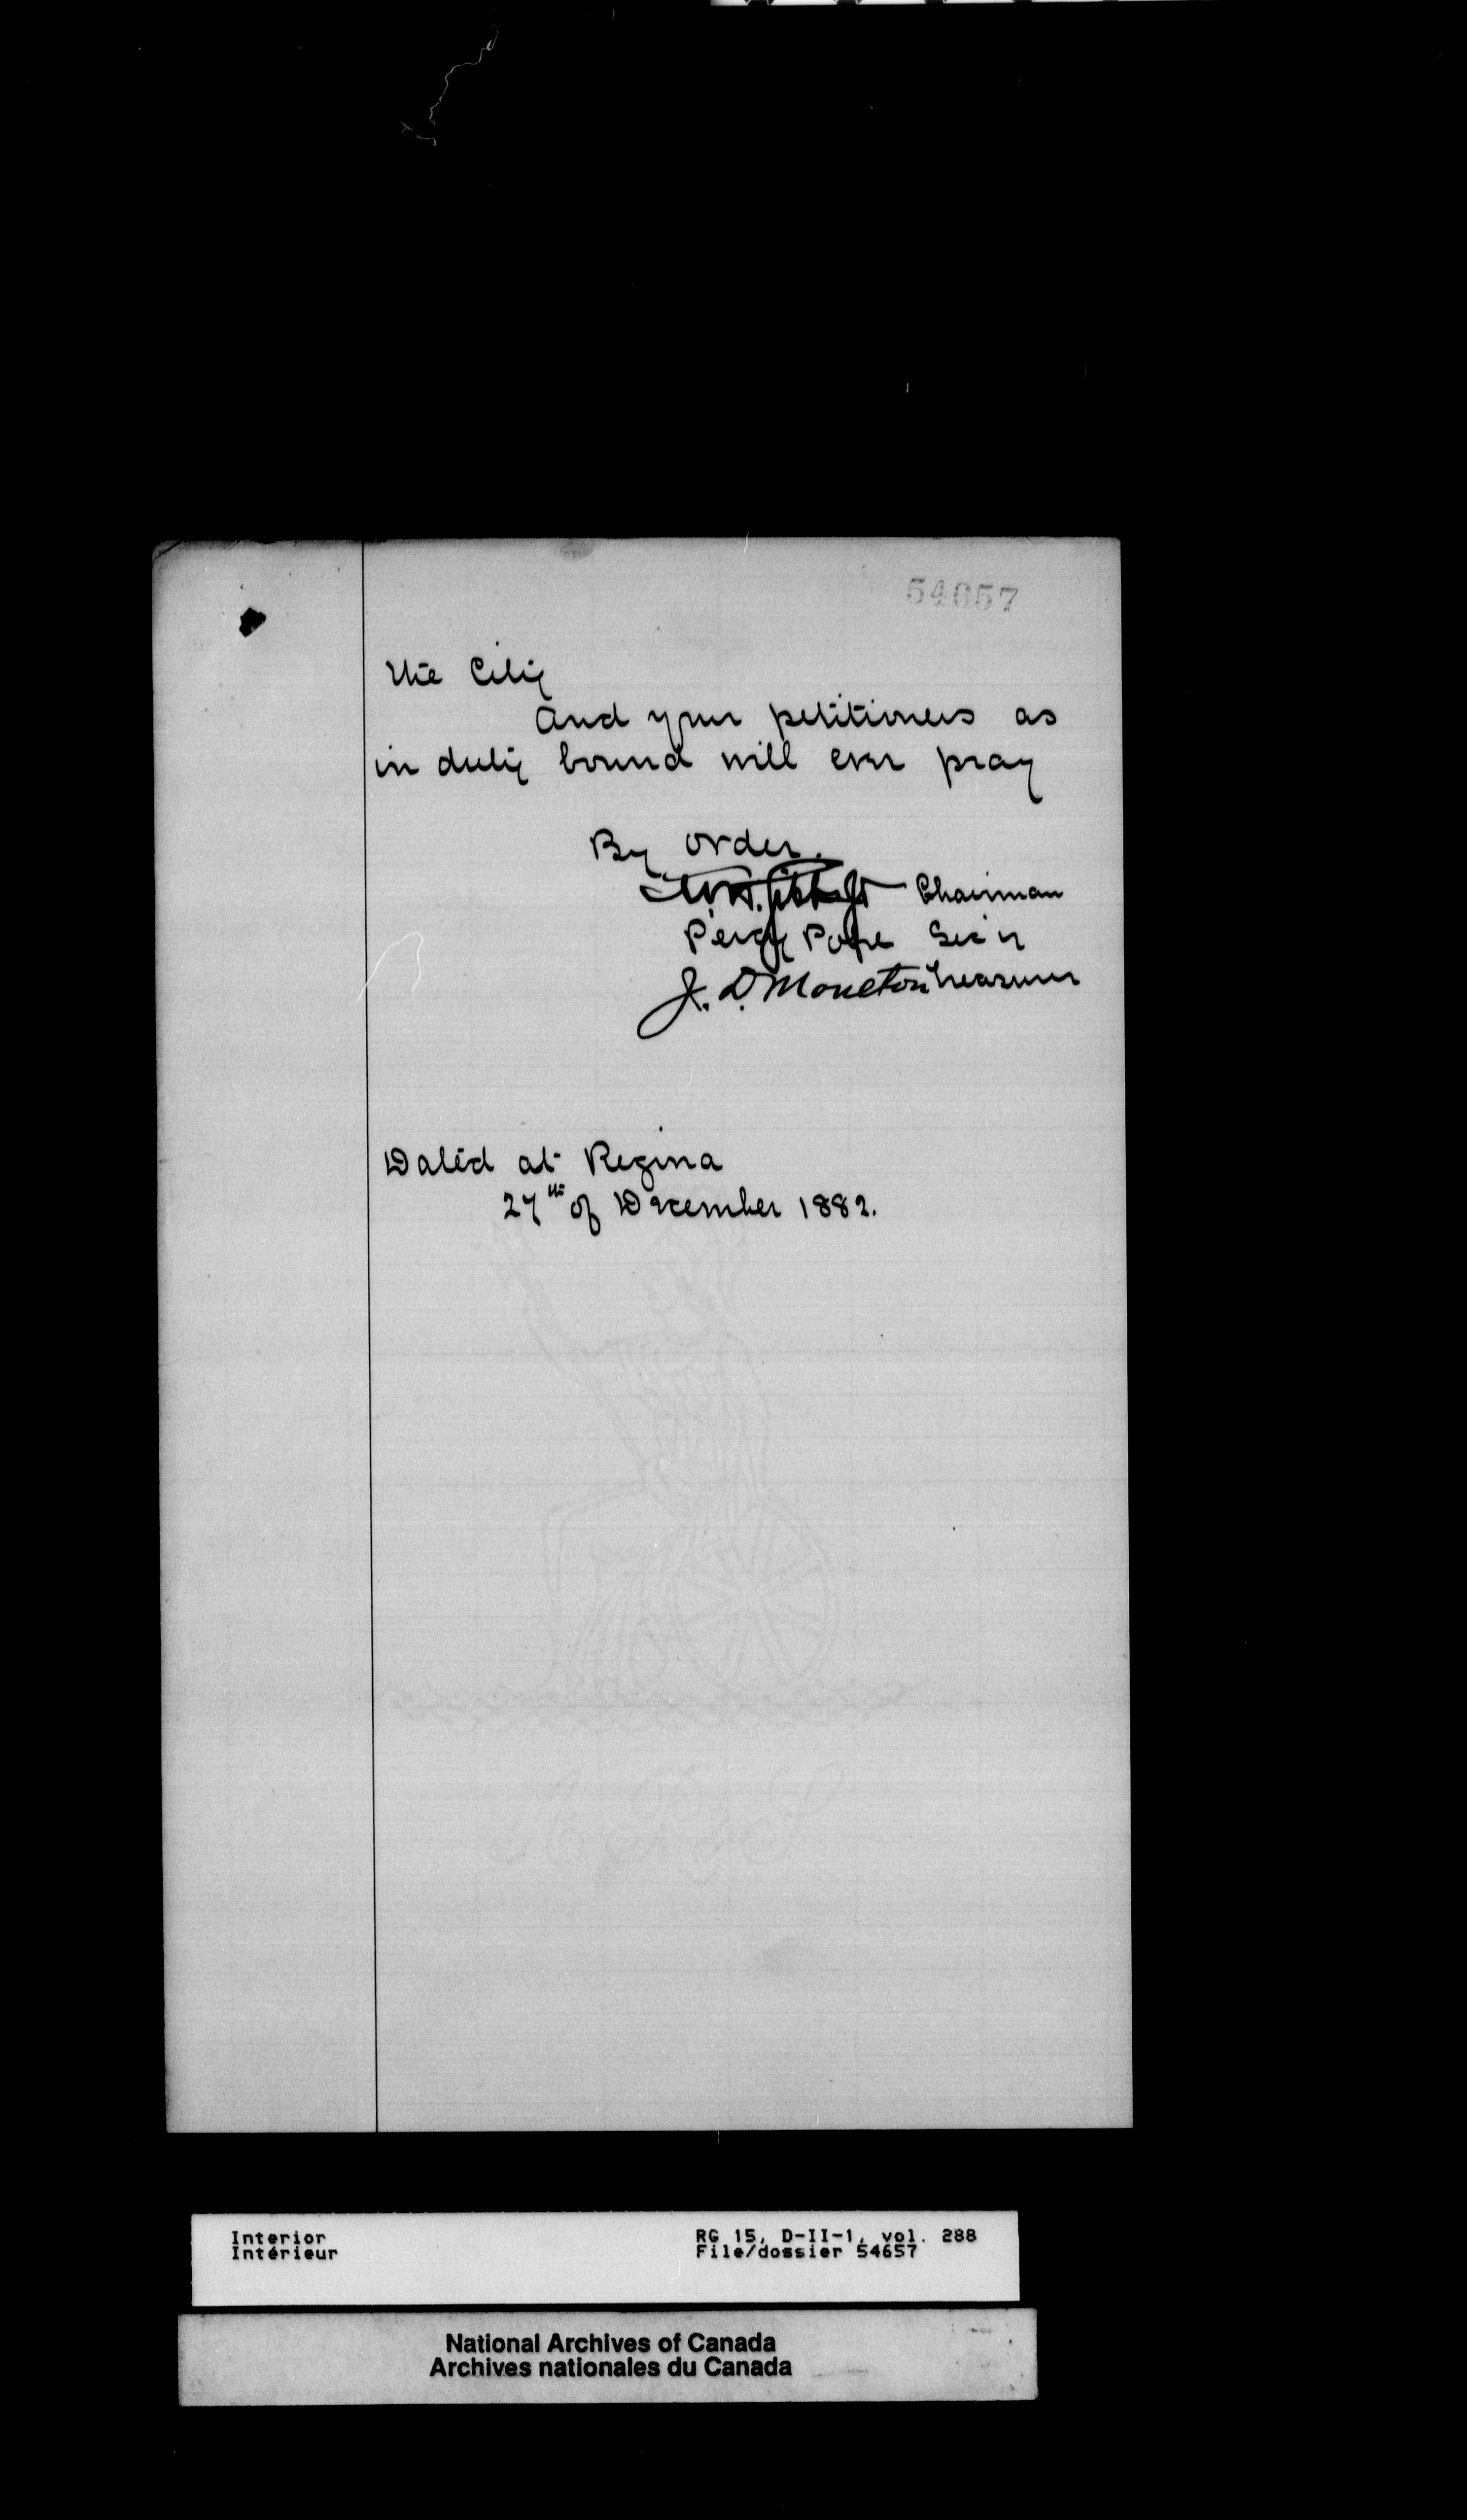 54657
the City
And your petitioners as
in duty bound will ever pray
By order.
Chairman
Percy Pope Sec'y
J. D. Moulton Treasurer
Dated at Regina
27th of December 1882.
Interior
Intérieur
RG 15, D-II-1, vol. 288
File/dossier 54657
National Archives of Canada
Archives nationales du Canada